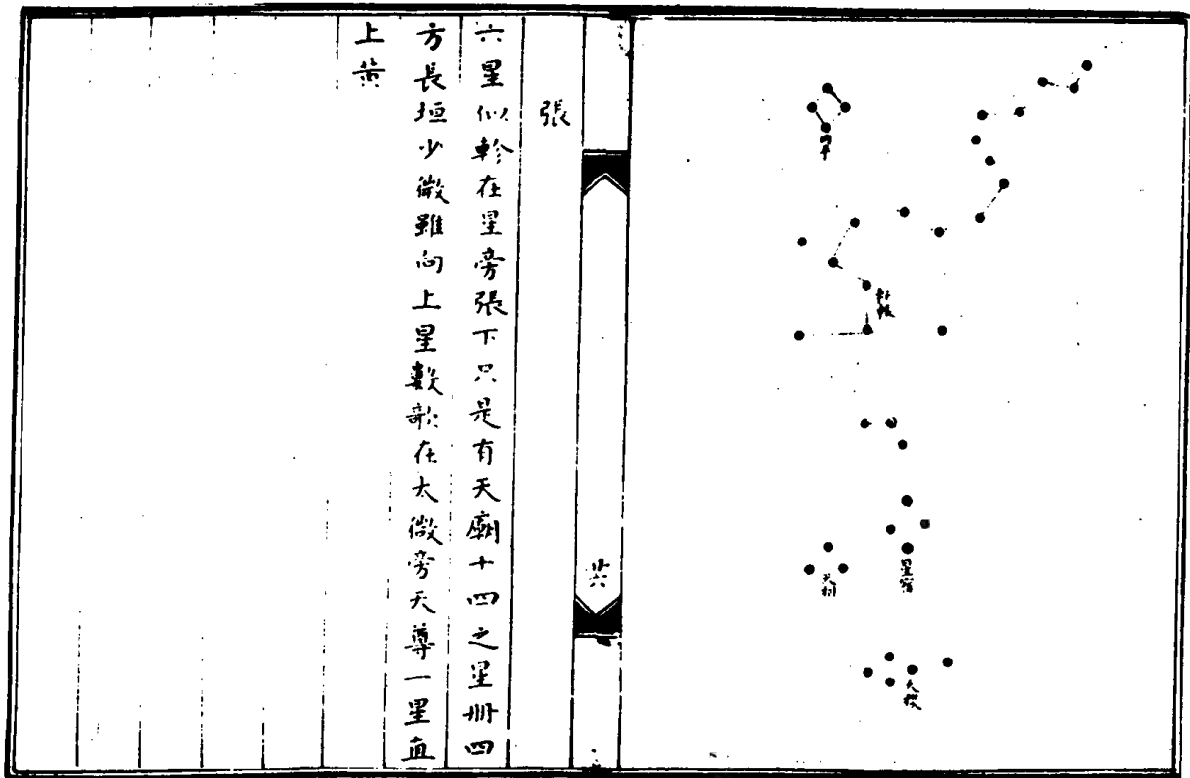 內平
軒轅
星宿
天相
天稷
廿六
張
六星似軫在星旁張下只是有天廟十四之星冊四
方長垣少微雖向上星數欹在太微旁天尊一星直
上黃